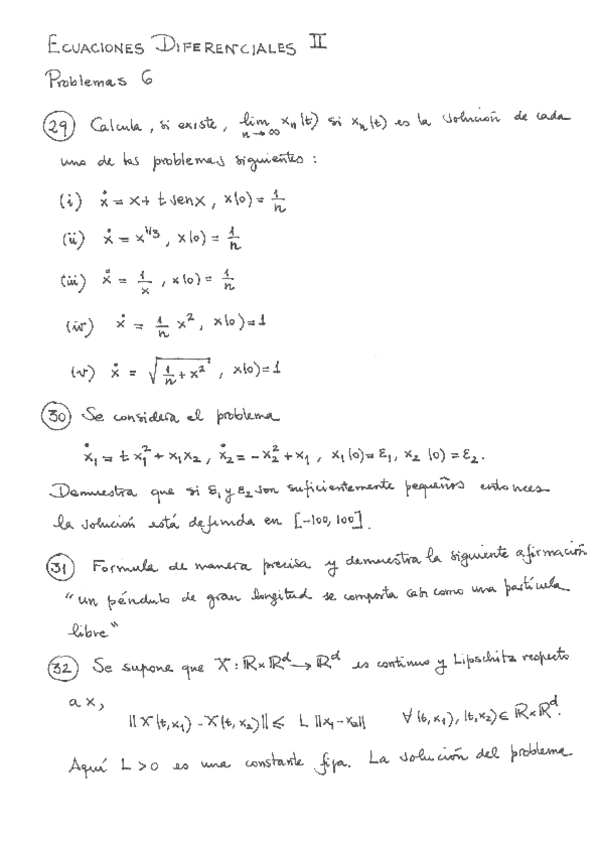 ECUACIONES DIFERENCIALES II
Problemas 6
(29) Calcula, si existe, lim n→∞ xₙ(t) si xₙ(t) es la solución de cada
uno de los problemas siguientes:
(i) ẋ = x + t sen x, x(0) = 1/n
(ii) ẋ = x^1/3, x(0) = 1/n
(iii) ẋ = 1/x, x(0) = 1/n
(iv) ẋ = 1/n x², x(0) = 1
(v) ẋ = √(1/n + x²), x(0) = 1
(30) Se considera el problema
ẋ₁ = t x₁² + x₁x₂, ẋ₂ = -x₂² + x₁, x₁(0) = ε₁, x₂(0) = ε₂.
Demuestra que si ε₁ y ε₂ son suficientemente pequeños entonces
la solución está definida en [-100, 100].
(31) Formula de manera precisa y demuestra la siguiente afirmación
"un péndulo de gran longitud se comporta casi como una partícula
libre"
(32) Se supone que X: ℝ×ℝᵈ → ℝᵈ es continuo y Lipschitz respecto
a x,
||X(t,x₁) - X(t,x₂)|| ≤ L ||x₁-x₂|| ∀(t,x₁),(t,x₂) ∈ ℝ×ℝᵈ.
Aquí L > 0 es una constante fija. La solución del problema